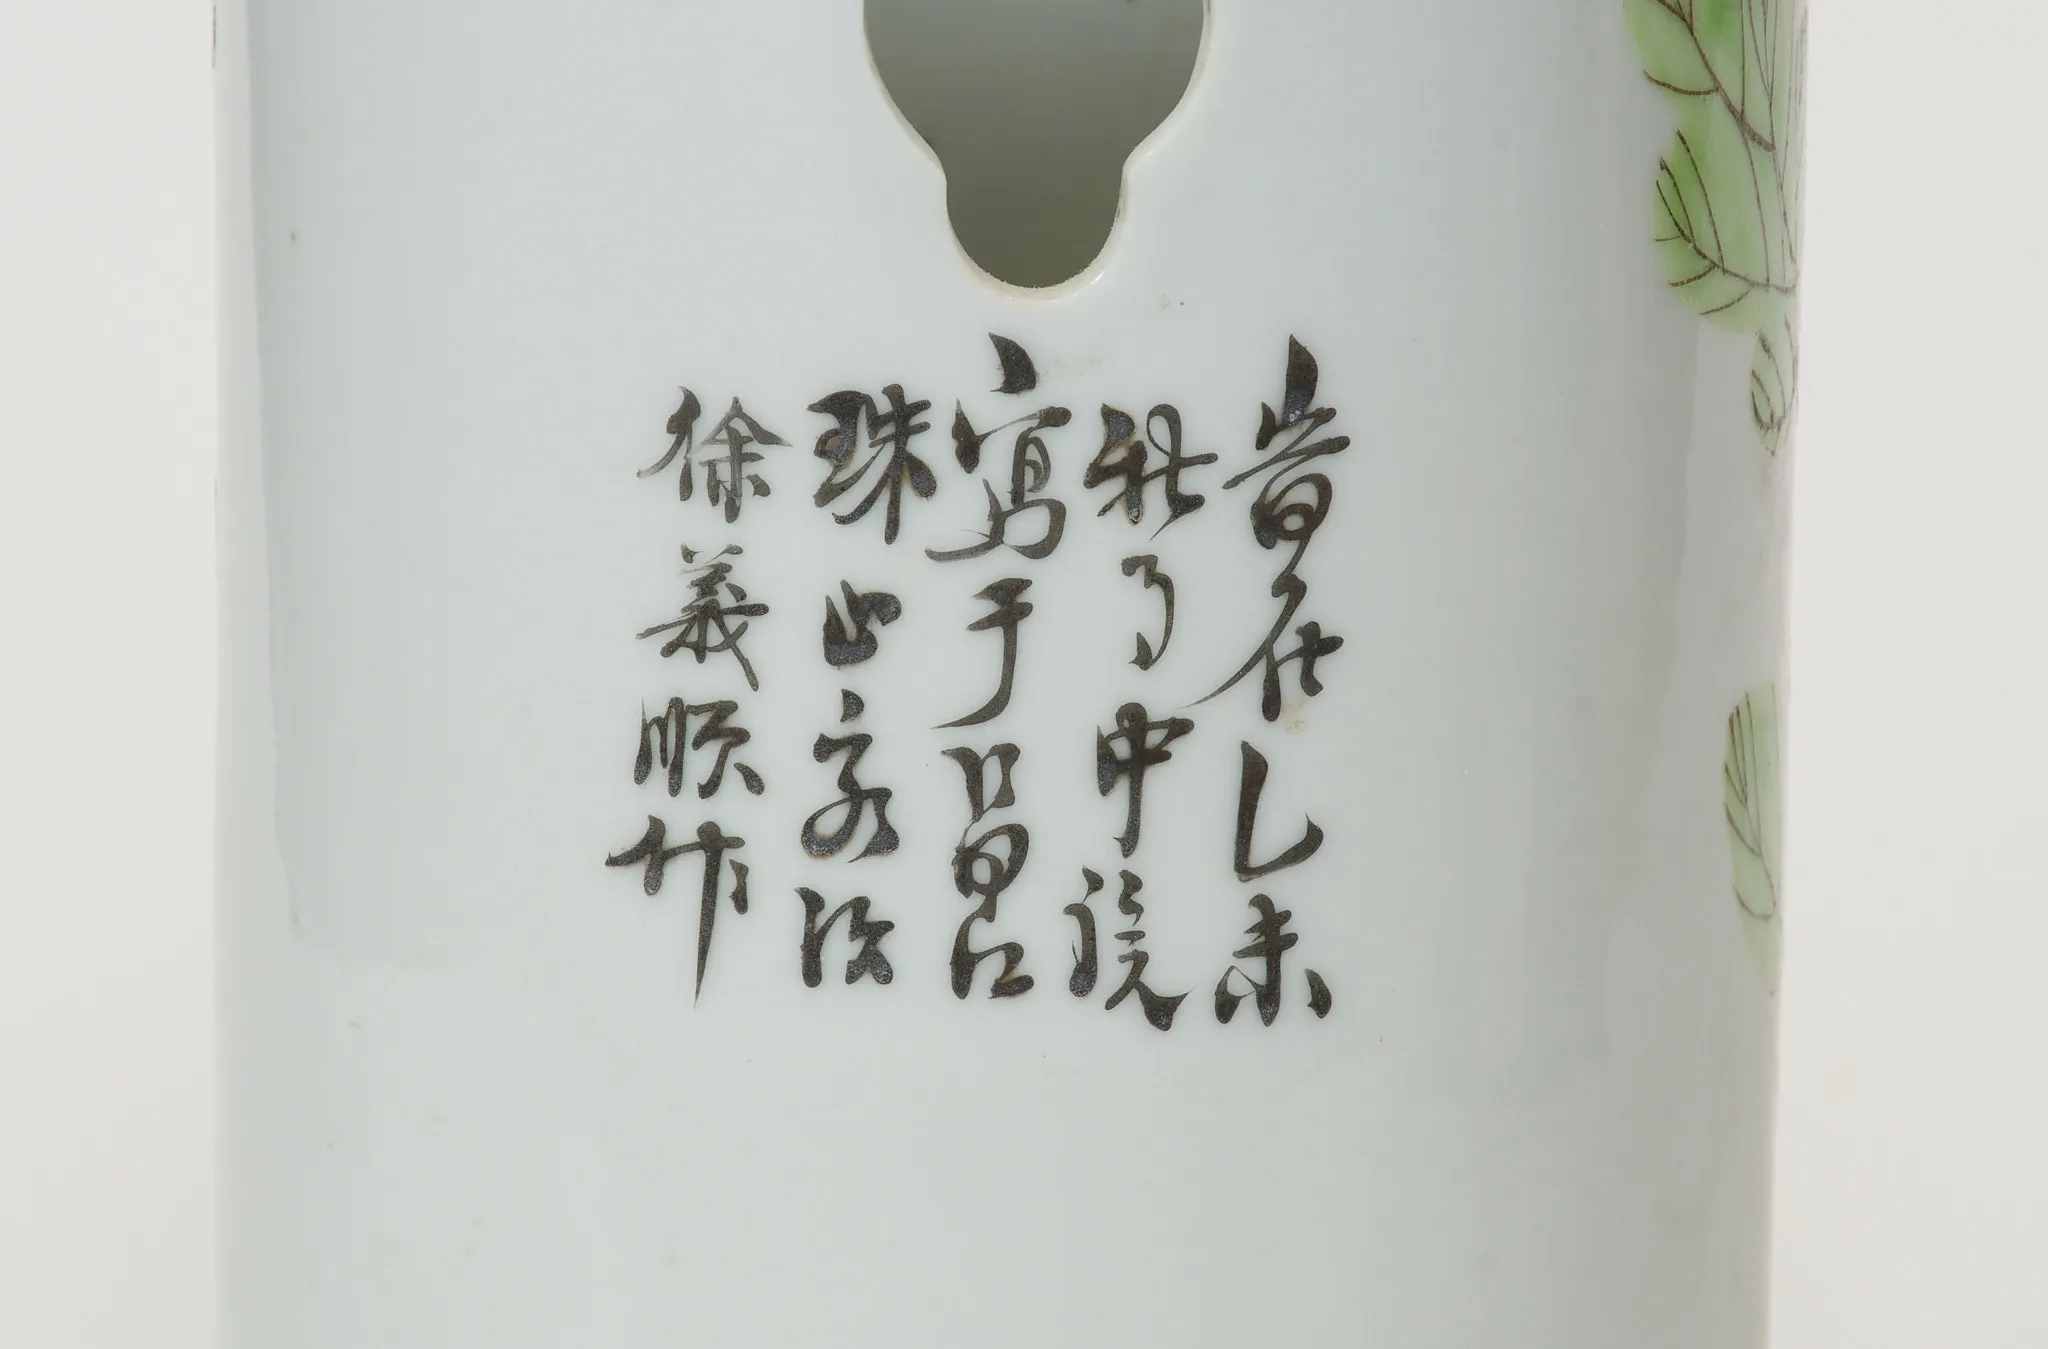 峕在乙未
秋月中浣
寫于昌江
珠山客次
徐義順作